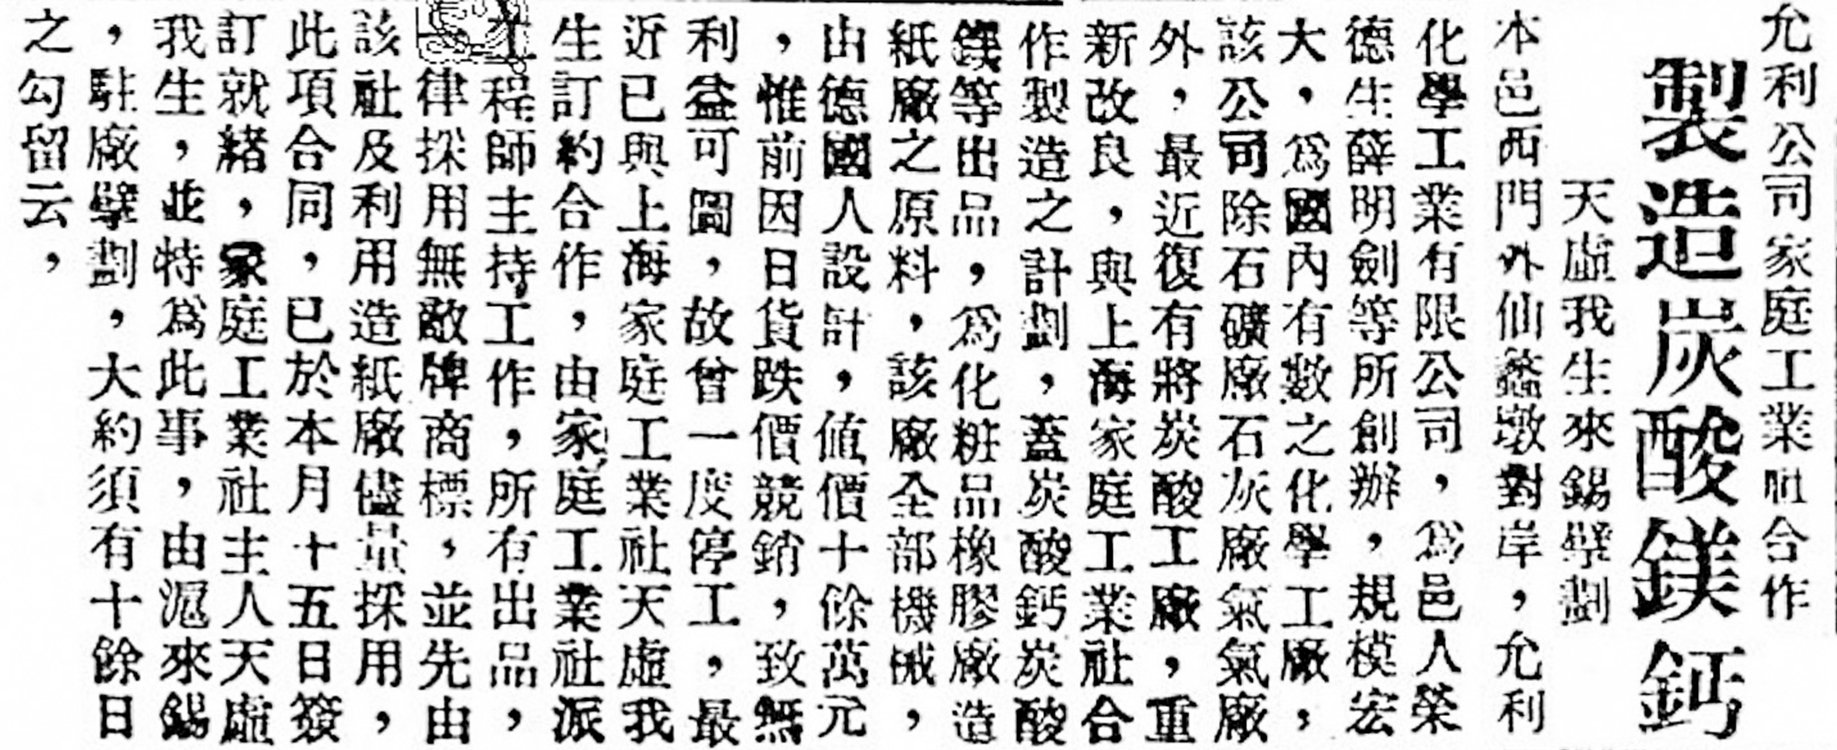 允利公司家庭工業社合作
製造炭酸鎂鈣
天虛我生來錫擘劃
本邑西門外仙蠡墩對岸，允利
化學工業有限公司，爲邑人榮
德生薛明劍等所創辦，規模宏
大，爲國內有數之化學工廠，
該公司除石礦廠石灰廠氣氣廠
外，最近復有將炭酸工廠，重
新改良，與上海家庭工業社合
作製造之計劃，蓋炭酸鈣炭酸
鎂等出品，爲化粧品橡膠廠造
紙廠之原料，該廠全部機械，
由德國人設計，値價十餘萬元
，惟前因日貨跌價競銷，致無
利益可圖，故曾一度停工，最
近已與上海家庭工業社天虛我
生訂約合作，由家庭工業社派
工程師主持工作，所有出品，
律採用無敵牌商標，並先由
該社及利用造紙廠儘量採用，
此項合同，已於本月十五日簽
訂就緒，家庭工業社主人天虛
我生，並特爲此事，由滬來錫
，駐廠擘劃，大約須有十餘日
之勾留云，